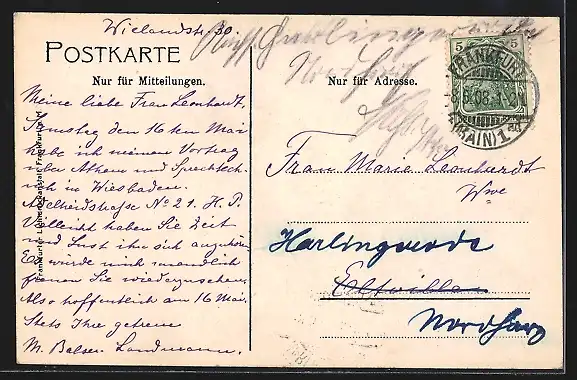 Wielandstr. 30.
POSTKARTE
Nur für Mitteilungen.
Meine liebe Frau Leonhardt,
Samstag den 16ten Mai
habe ich meinen Vortrag
über Athem und Sprechtech-
nik in Wiesbaden.
Adelheidstraße No 21. H. P.
Vielleicht haben Sie Zeit
und Lust ihn sich anzuhören
Es würde mich unendlich
freuen Sie wiederzusehen.
Also hoffentlich am 16 Mai.
Stets Ihre getreue
M. Balser Landmann.
Frankfurter Lichtdruckanstalt Frankfurt a. M.
Nordharz
Nur für Adresse.
5 5
FRANKFURT
5.08.
(MAIN) 1
Frau Marie Leonhardt
Wwe
Harlingerode
Eltville
Nordharz